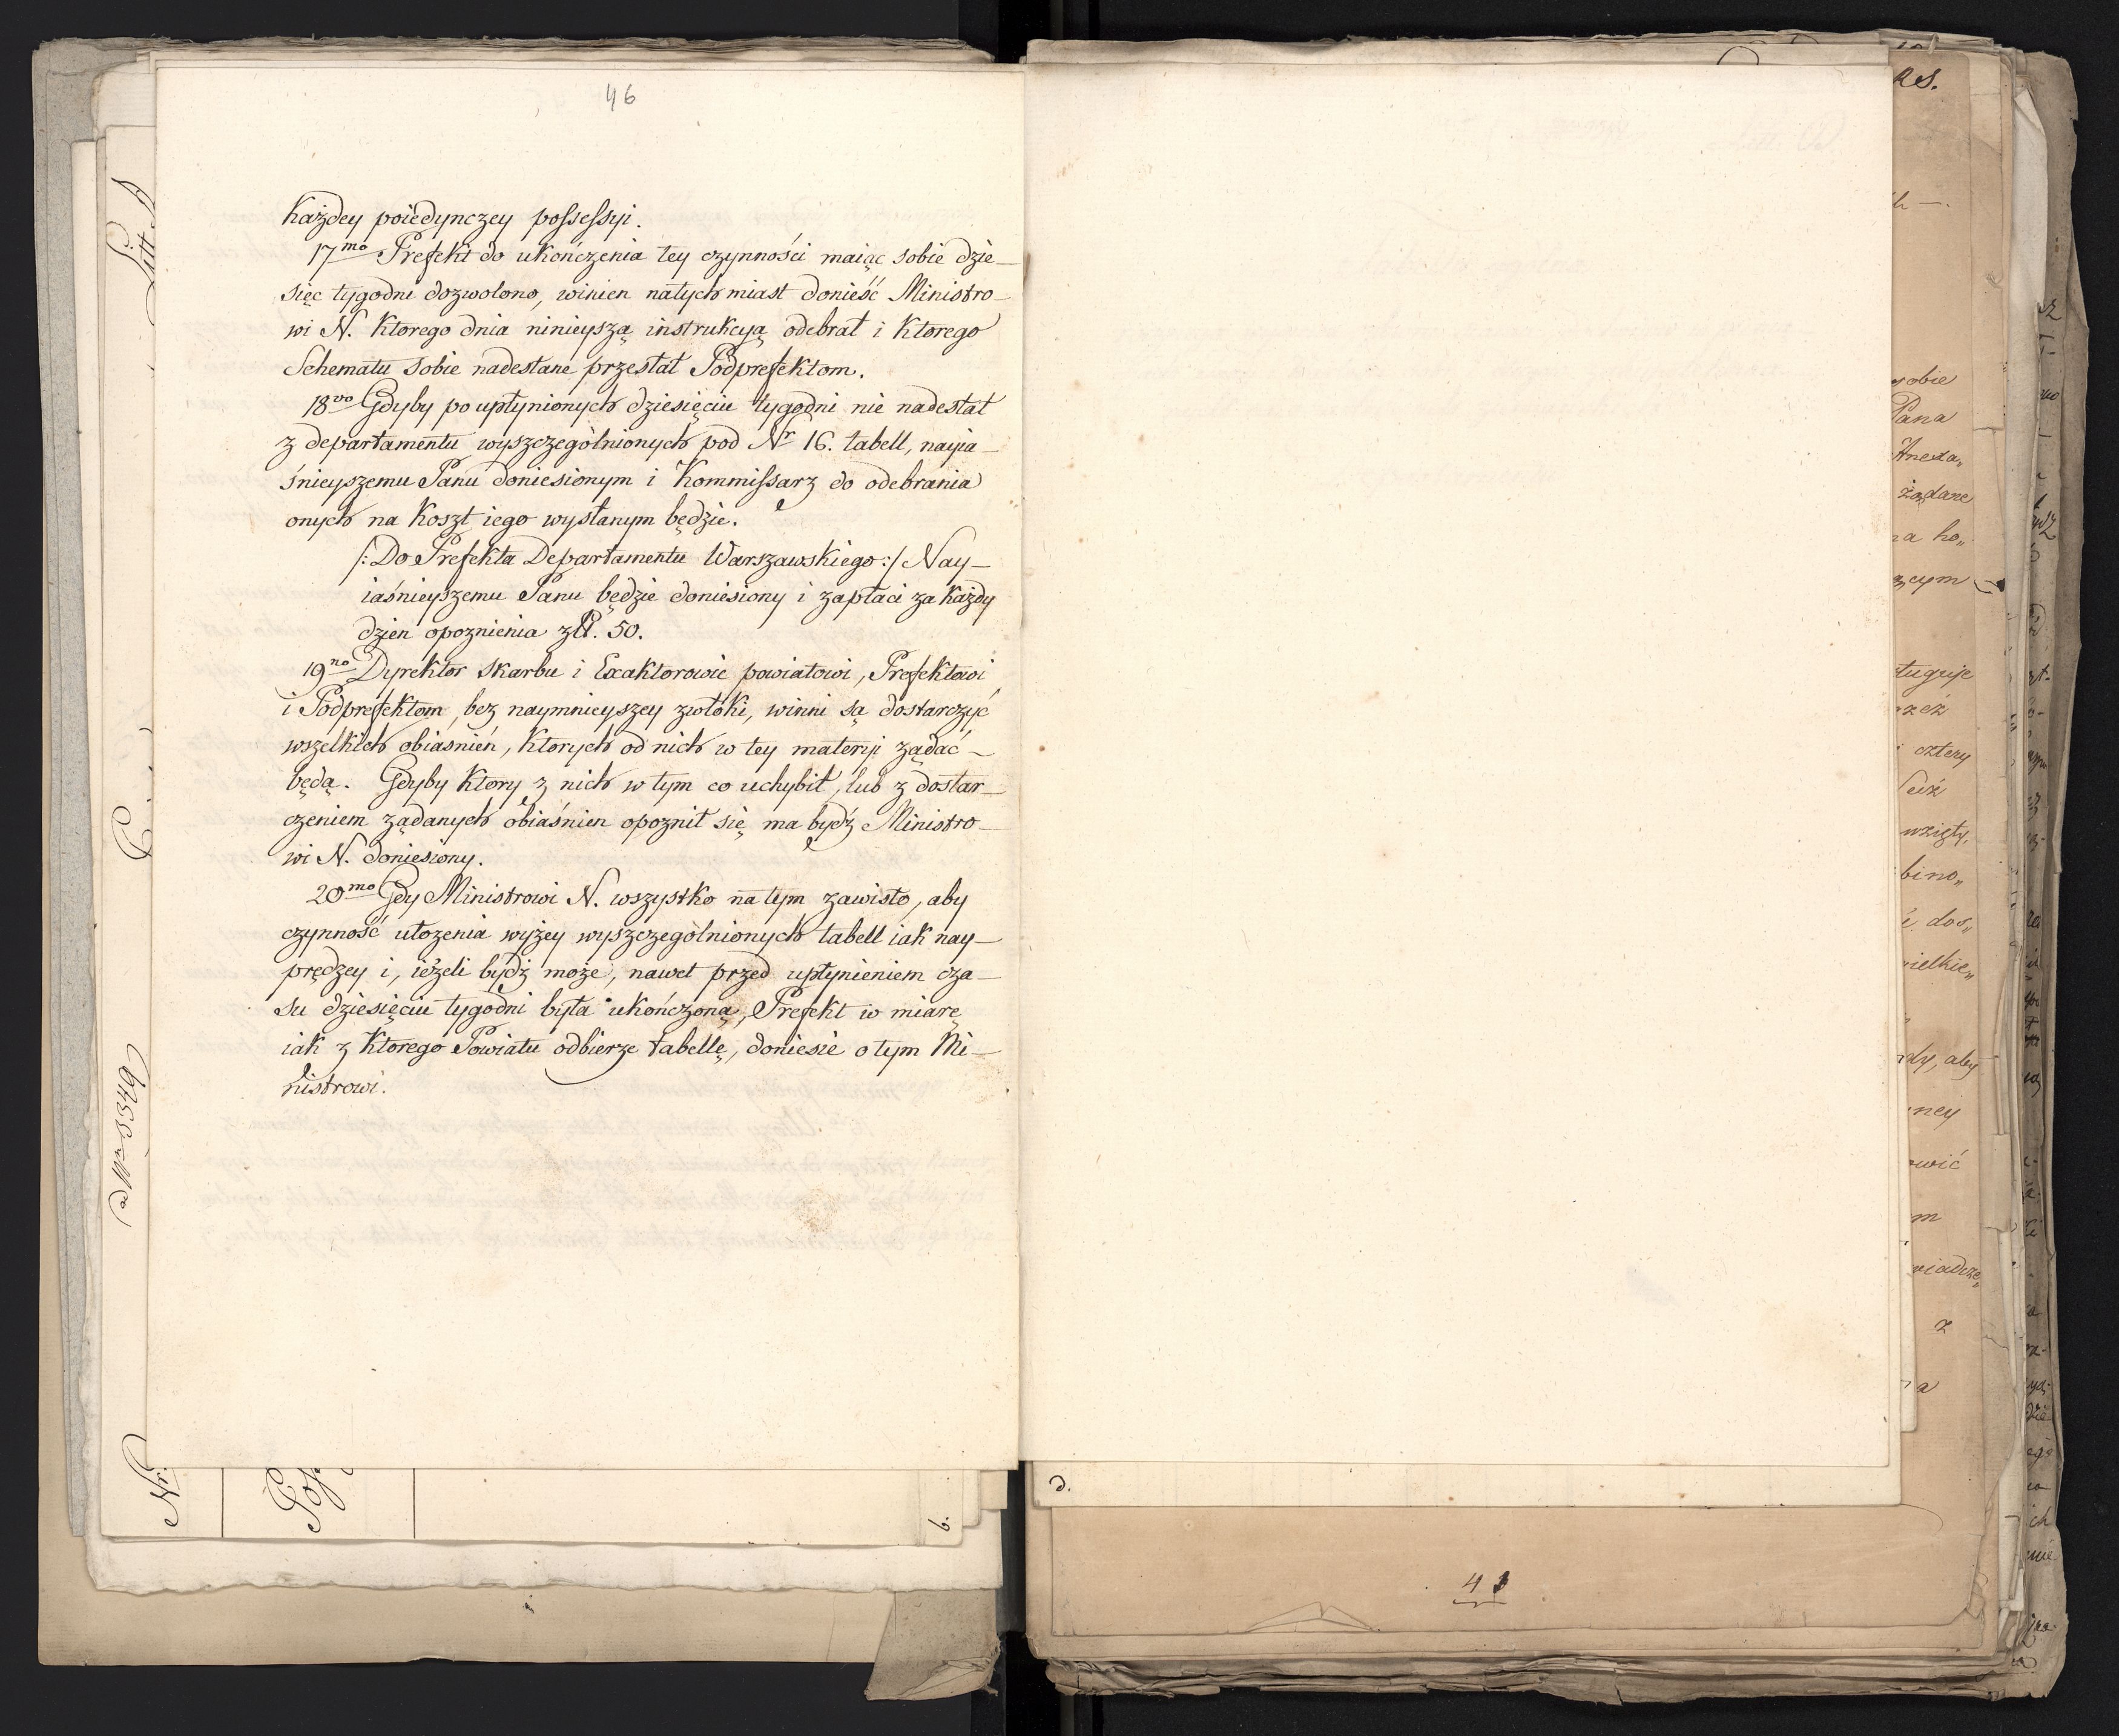 46
każdey poiedynczey possessyi.
17mo Prefekt do ukończenia tey czynności maiąc sobie dzie-
sięc tygodni dozwolono, winien natychmiast donieść Ministro-
wi N. ktorego dnia ninieyszą instrukcyą odebrał i ktorego
Schematu sobie nadesłane przesłał Podprefektom.
18vo Gdyby po upłynionych dziesięciu tygodni nie nadesłał
z departamentu wyszczegòlnionych pod Nr 16. tabell, nayia-
śnieyszemu Panu doniesionym i Kommissarz do odebrania
onych na koszt iego wysłanym będzie.
/: Do Prefekta Departamentu Warszawskiego :/ Nay-
iaśnieyszemu Panu będzie doniesiony i zapłaci za każdy
dzien opoznienia zł. 50.
19no Dyrektor skarbu i Exaktorowie powiatowi, Prefektowi
i Podprefektom, bez naymnieyszey zwłóki, winni są dostarczyć
wszelkich obiasnień, ktorych od nich w tey materyi żądać-
będą. Gdyby ktory z nich w tym co uchybił, lub z dostar-
czeniem żądanych obiaśnien opoznił się, ma bydź Ministro-
wi N. doniesiony.
20mo Gdy Ministrowi N. wszystko na tym zawisło, aby
czynność ułożenia wyżey wyszczegòlnionych tabell iak nay-
prędzey i, ieżeli bydź może, nawet przed upłynieniem cza-
su dziesięciu tygodni była ukończoną, Prefekt w miarę
iak z ktorego Powiatu odbierze tabellę, doniesie o tym Mi-
nistrowi.
Litt A
Nr.
6.
d.
sobie
Pana
żądane
cztery
wzięty,
aby
ney
z
a
41